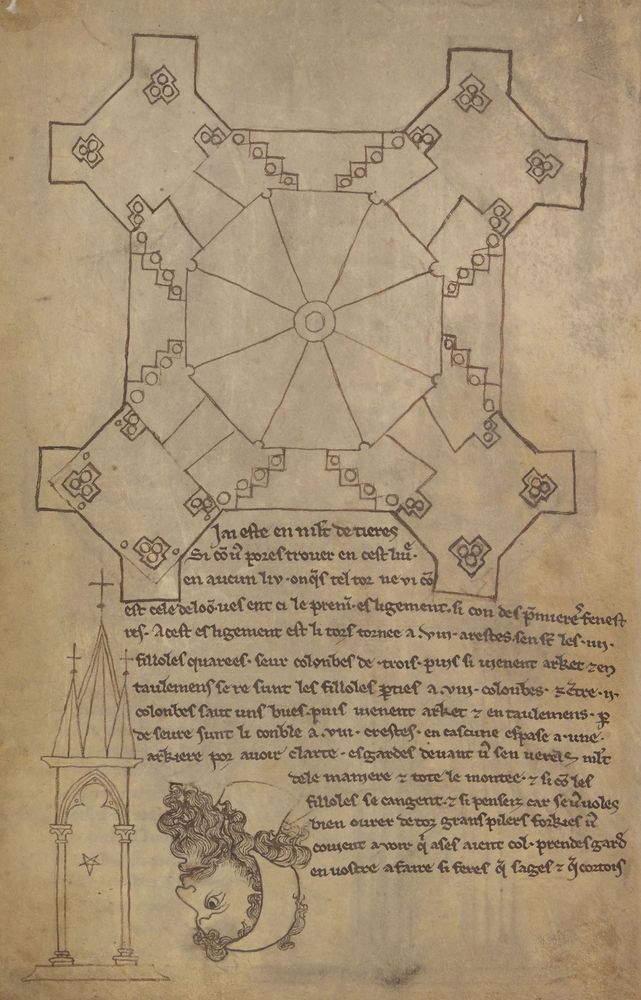 Jai este en ml't de tieres
Si cō v' pores trover en cest liv'.
en aucun liv · onq̄s tel tor ne vi cō
est cele de loō. ves ent ci le prem̄. esligement. si con des p̄mieres fenest
res. A cest esligement est li tors tornee a .viii. arestes. sen st' les .iiii.
filloles quarees. seur colonbes de .trois. puis si vienent arket ⁊ en
taulemens se re sunt les filloles p̄ties a .viii. colonbes. ⁊ entre .ii.
colonbes saut uns bues. puis vienent arket ⁊ en taulemens. p̄
de seure sunt li conble a .viii. crestes. en cascune espase a .une.
arkiere por avoir clarte. esgardes devant v' sen veres ml't
dele maniere ⁊ tote le montee. ⁊ si cō les
filloles se cangent. ⁊ si penseiz car se v' voles
bien ovrer de toz grans pilers forkies v'
covient avoir q̄ ases aient col. prendes gard'
en vostre afaire si feres q̄ sages ⁊ q̄ cortois